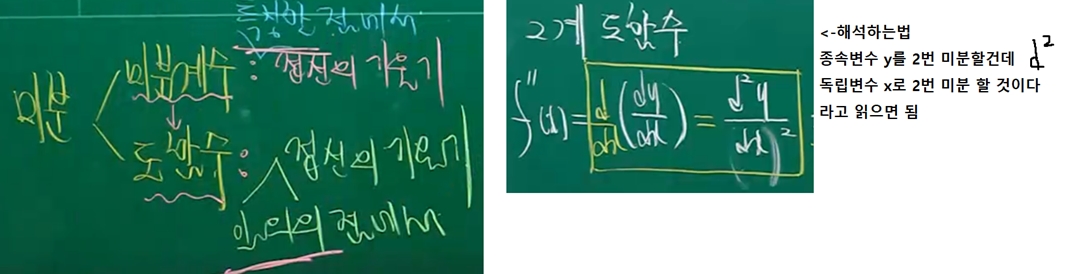 특정한 점에서
미분계수 : 접선의 기울기
미분
도함수 : 접선의 기울기
임의의 점에서
2계 도함수
f''(x) = d/dx (dy/dx) = d²y/dx²
<-해석하는법
종속변수 y를 2번 미분할건데 d²
독립변수 x로 2번 미분 할 것이다
라고 읽으면 됨